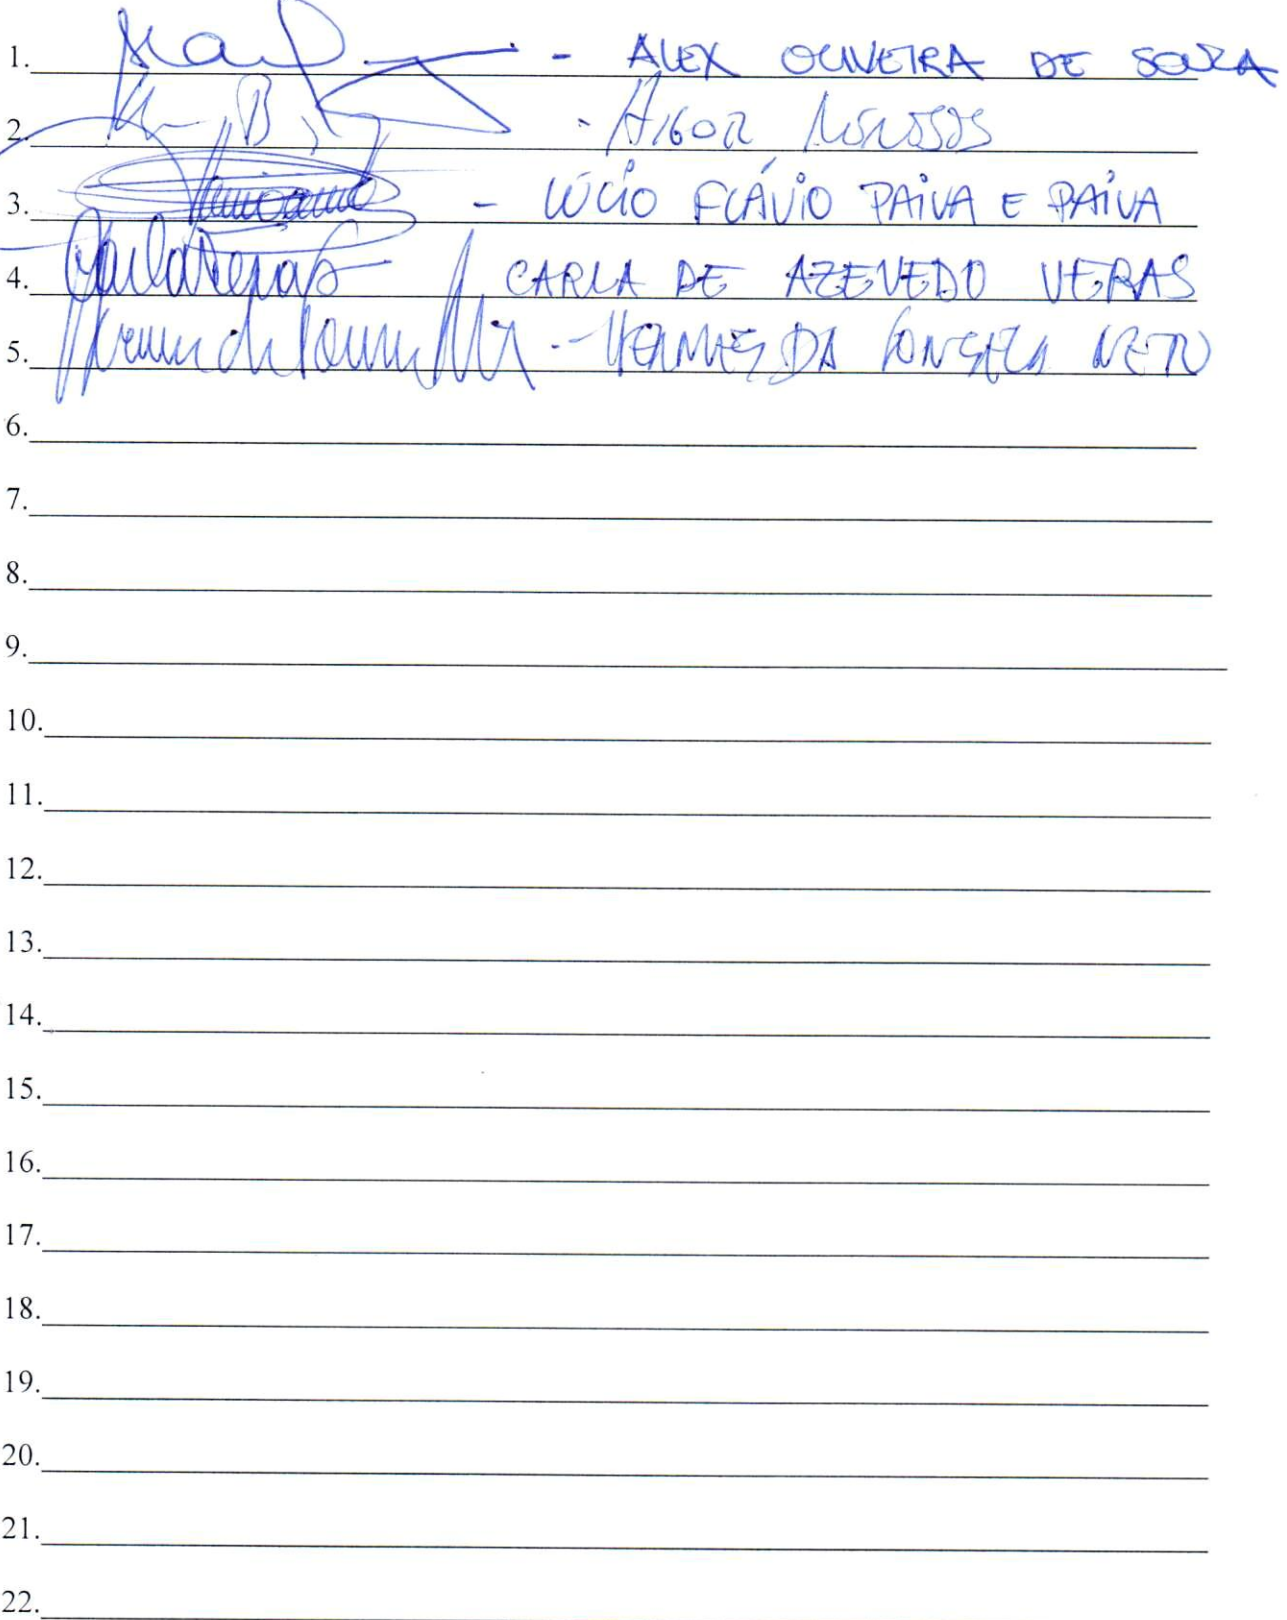 1. - ALEX OLIVEIRA DE SOUZA
2. - HIGOR
3. - LÚCIO FLÁVIO PAIVA E PAIVA
4. CARLA DE AZEVEDO VERAS
5. - HERMES DA FONSECA NETO
6.
7.
8.
9.
10.
11.
12.
13.
14.
15.
16.
17.
18.
19.
20.
21.
22.